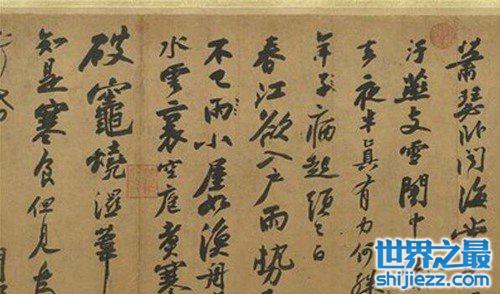 蕭瑟臥聞海棠
污燕支雪闇中
去夜半真有力何殊
年子病起頭已白
春江欲入戶雨勢
不已雨小屋如漁舟
水雲裏空庖煮寒
破竈燒濕葦
知是寒食但見烏
世界之最
shijiezz.com